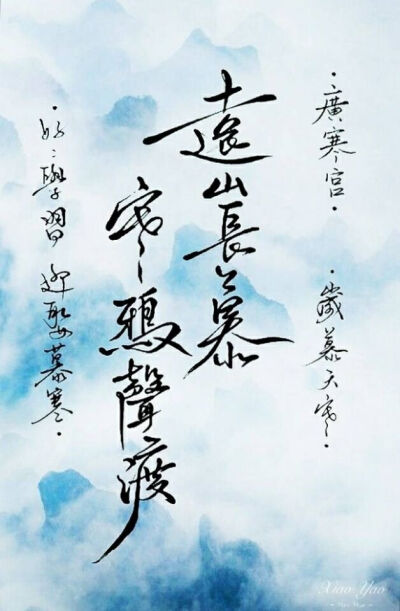 ·廣寒宮·
·歲暮天寒·
遠山長暮
寒鴉聲渡
·好〻學習
迎娶慕寒·
Xiao Yao